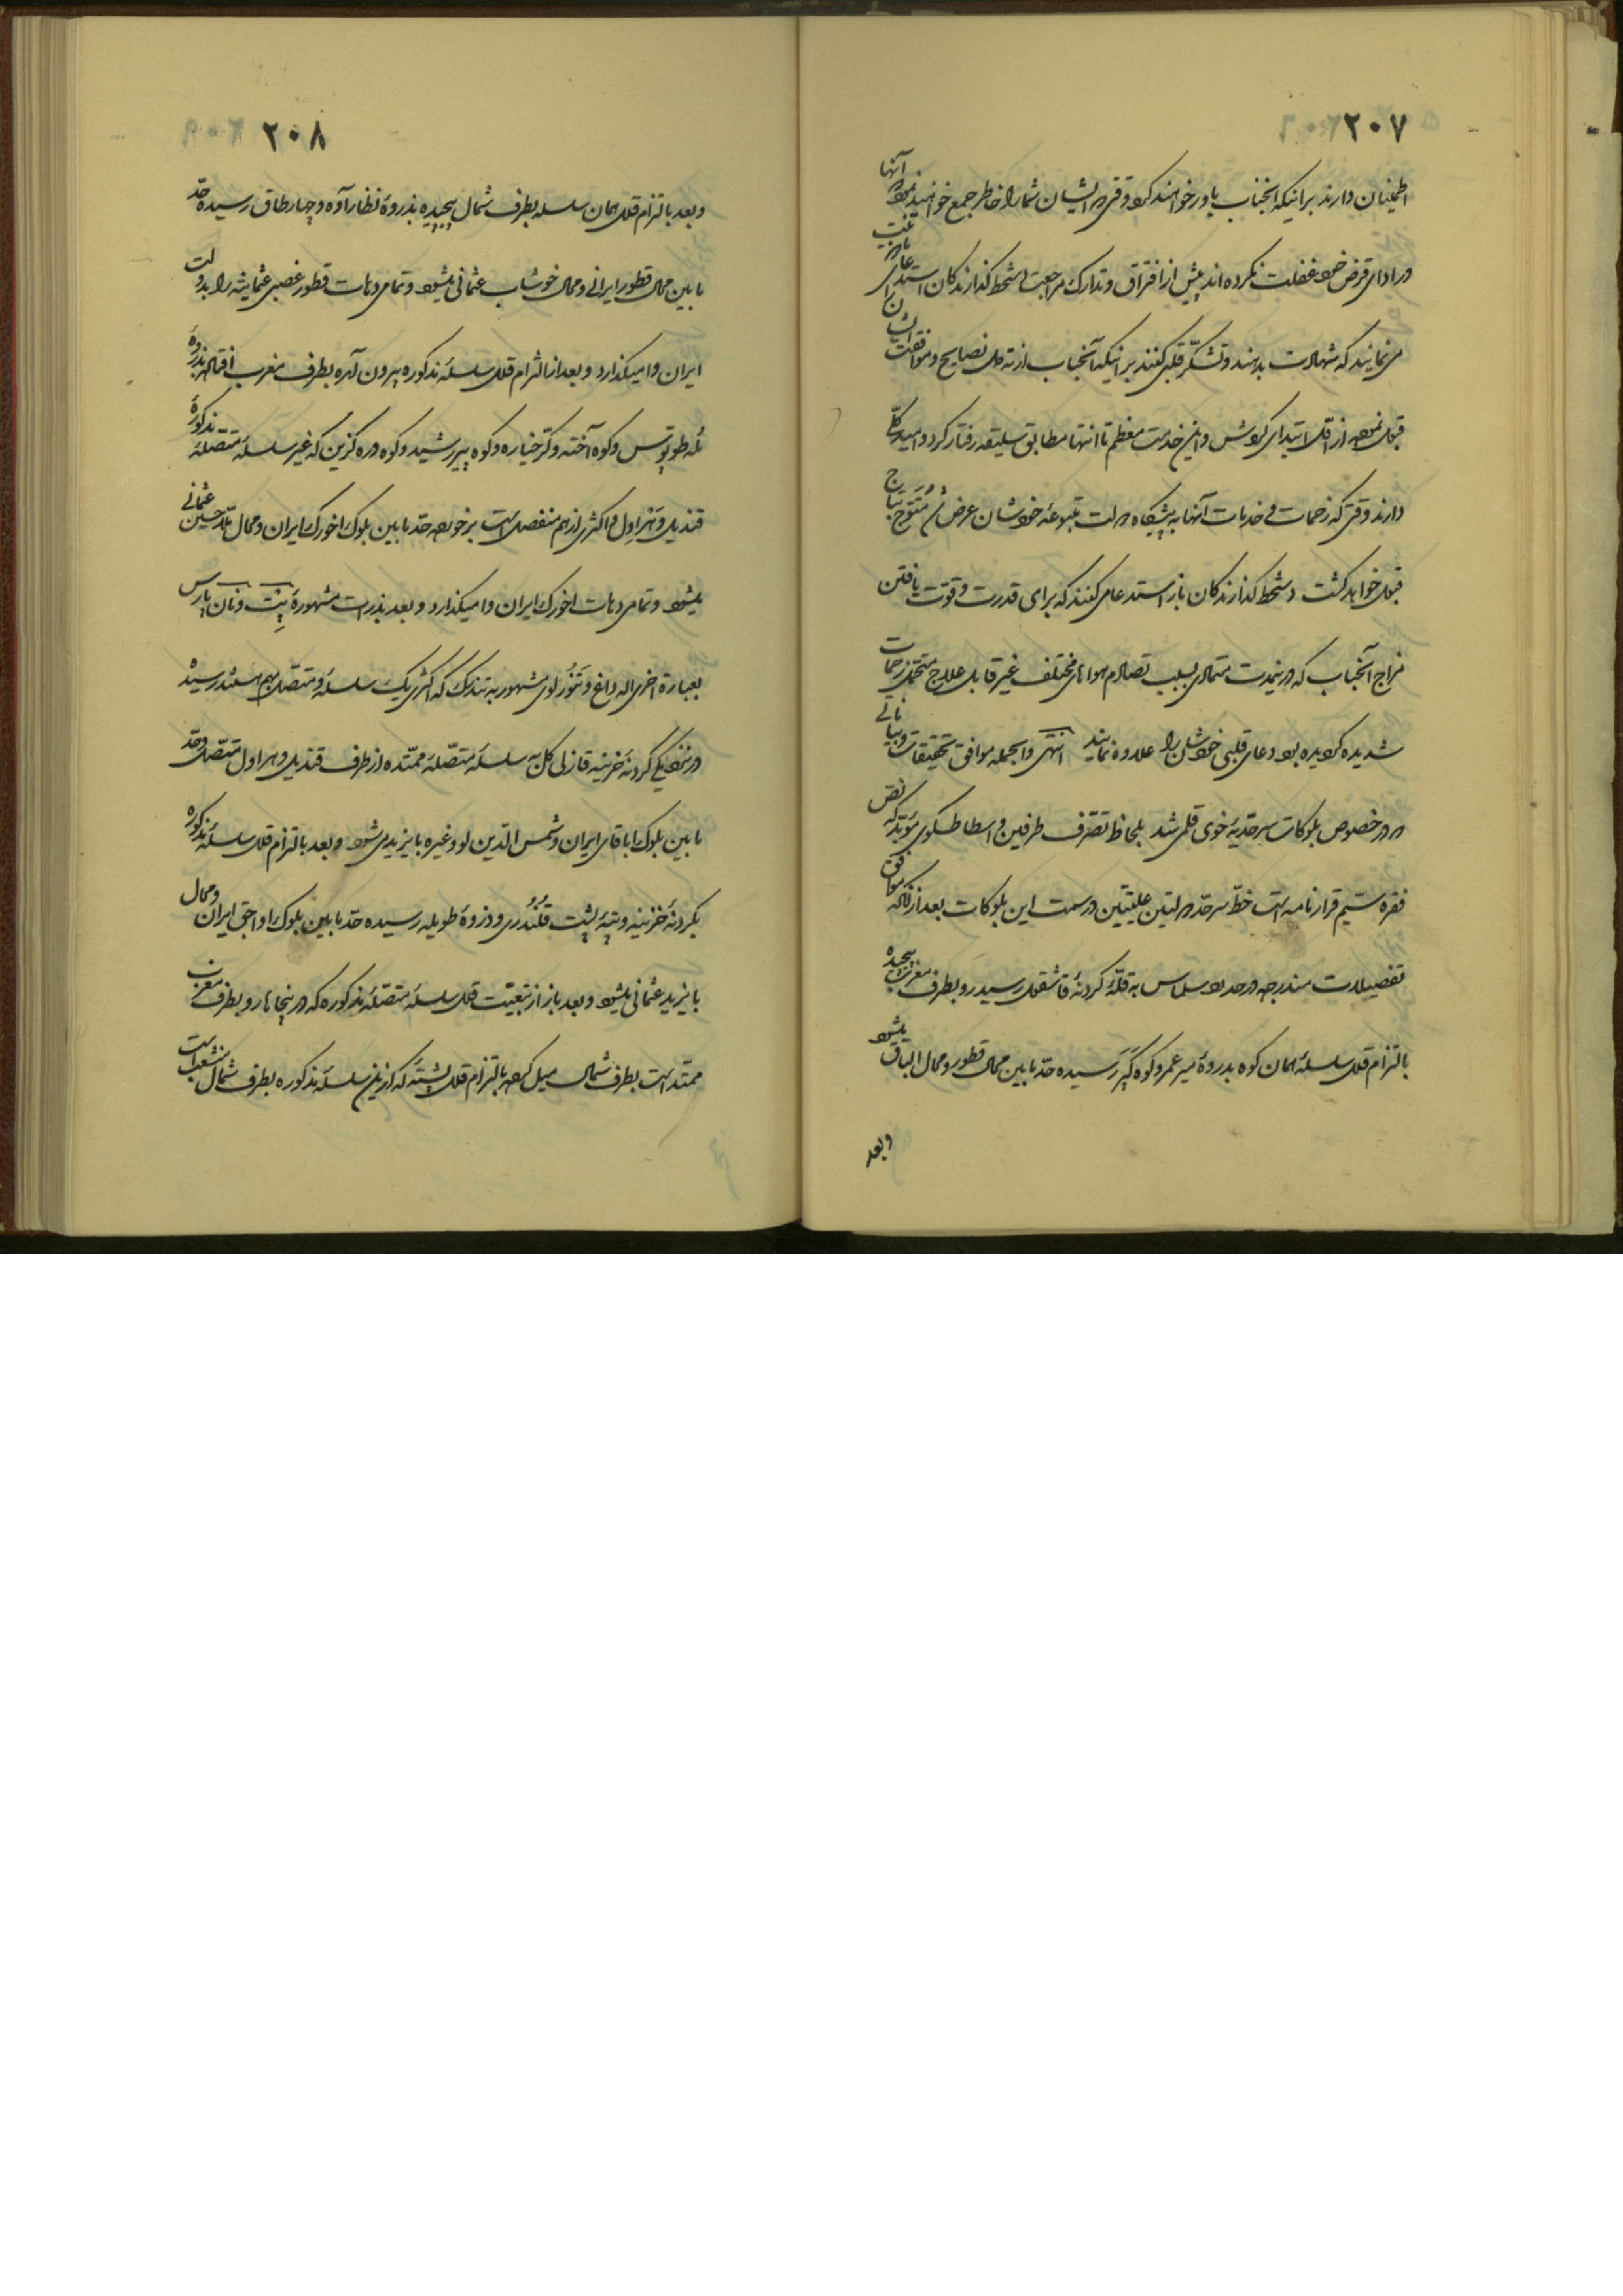 ۲۰۷
اطمینان دارند برانیکه آنجناب باور خواهند کرد وقتی در ایشان شما را خاطر جمع خواهند نمود آنها
در ادای قرض خود غفلت نکرده‌اند پیش از افتراق و تدارک مراجعت دستخط گذارندگان استدعای
می‌نمایند که شهادت بدهند و تشکر قلبی کنند برانیکه آنجناب از ته دل نصایح و موافقت ایشان را
قبول نموده از اول ابتدای کوشش و این خدمت معظم تا انتها مطابق سلیقه رفتار کرد و امید کلی
دارند وقتی که زحمات و خدمات آنها به پیشگاه دولت متبوعه خودشان عرض شد
قبول خواهد گشت دستخط گذارندگان باز استدعا می‌کنند که برای قدرت و قوت یافتن
مزاج آنجناب که درینمدت متمادی بسبب تصادم هوای مختلف غیر قابل علاج متحمل زحمات
شدیده گردیده بود دعای قلبی خودشان را علاوه نمایند انتهی والجمله موافق تحقیقات و بیاناتی
که در خصوص بلوکات سرحدیهٔ خوی قلمی شد بلحاظ تصرف طرفین و اسطاطسکوی مؤید نص
فقره سیم قرارنامه است خط سرحد دولتین علیتین در سمت این بلوکات بعد از آنکه موافق
تفصیلات مندرجه در حدود سلماس به قلهٔ گردنهٔ قاشقول رسید رو بطرف مغرب پیچیده
بالتزام قلل سلسلهٔ همان کوه بدروهٔ میر عمر و کوه کپر رسیده حد مابین محال قطور و محال الباق میشود
و بعد
۲۰۸
و بعد بالتزام قلل همان سلسله بطرف شمال پیچیده بذروهٔ نظارآوه و چارطاق رسیده حد
مابین محال قطور ایرانی و محال خوشاب عثمانی میشود و تمامی دهات قطور غصبی عثمانیه را بدولت
ایران وامیگذارد و بعد از التزام قلل سلسلهٔ مذکوره بیرون آمده بطرف مغرب افتاده بذروهٔ
تله طوتوتس و کوه آخته و کرخیاره و کوه پیر رشید و کوه دره کزین که غیر سلسلهٔ متصلهٔ مذکورهٔ
قندیل و هراول و اکثری از هم منفصل است برخورده حد مابین بلوک اخورک ایران و محال ملاحسین عثمانی
میشود و تمامی دهات اخورک ایران وامیگذارد و بعد بذرات مشهورهٔ بیت و نان پارس
بعبارة اخری اله داغ و تنورلوی مشهور به تندرک که اکثری یک سلسله و متصل بهم هستند رسیده
در نزدیکی گردنهٔ خزینه قازلی گل به سلسلهٔ متصلهٔ ممتده از طرف قندیل و هراول متصل و حد
مابین بلوک اباقای ایران و شمس‌الدین‌لو و غیره بایزیدی شود و بعد بالتزام قلل سلسلهٔ مذکوره
بگردنهٔ خزینه و تپهٔ پشت قلندری و ذروهٔ طویله رسیده حد مابین بلوک اواجق ایران و محال
بایزید عثمانی میشود و بعد باز از تبعیت قلل سلسلهٔ متصلهٔ مذکوره که درینجاها رو بطرف مغرب
ممتد است بطرف شمال میل کرده بالتزام قلل پشتهٔ که ازین سلسلهٔ مذکوره بطرف شمال منشعب است